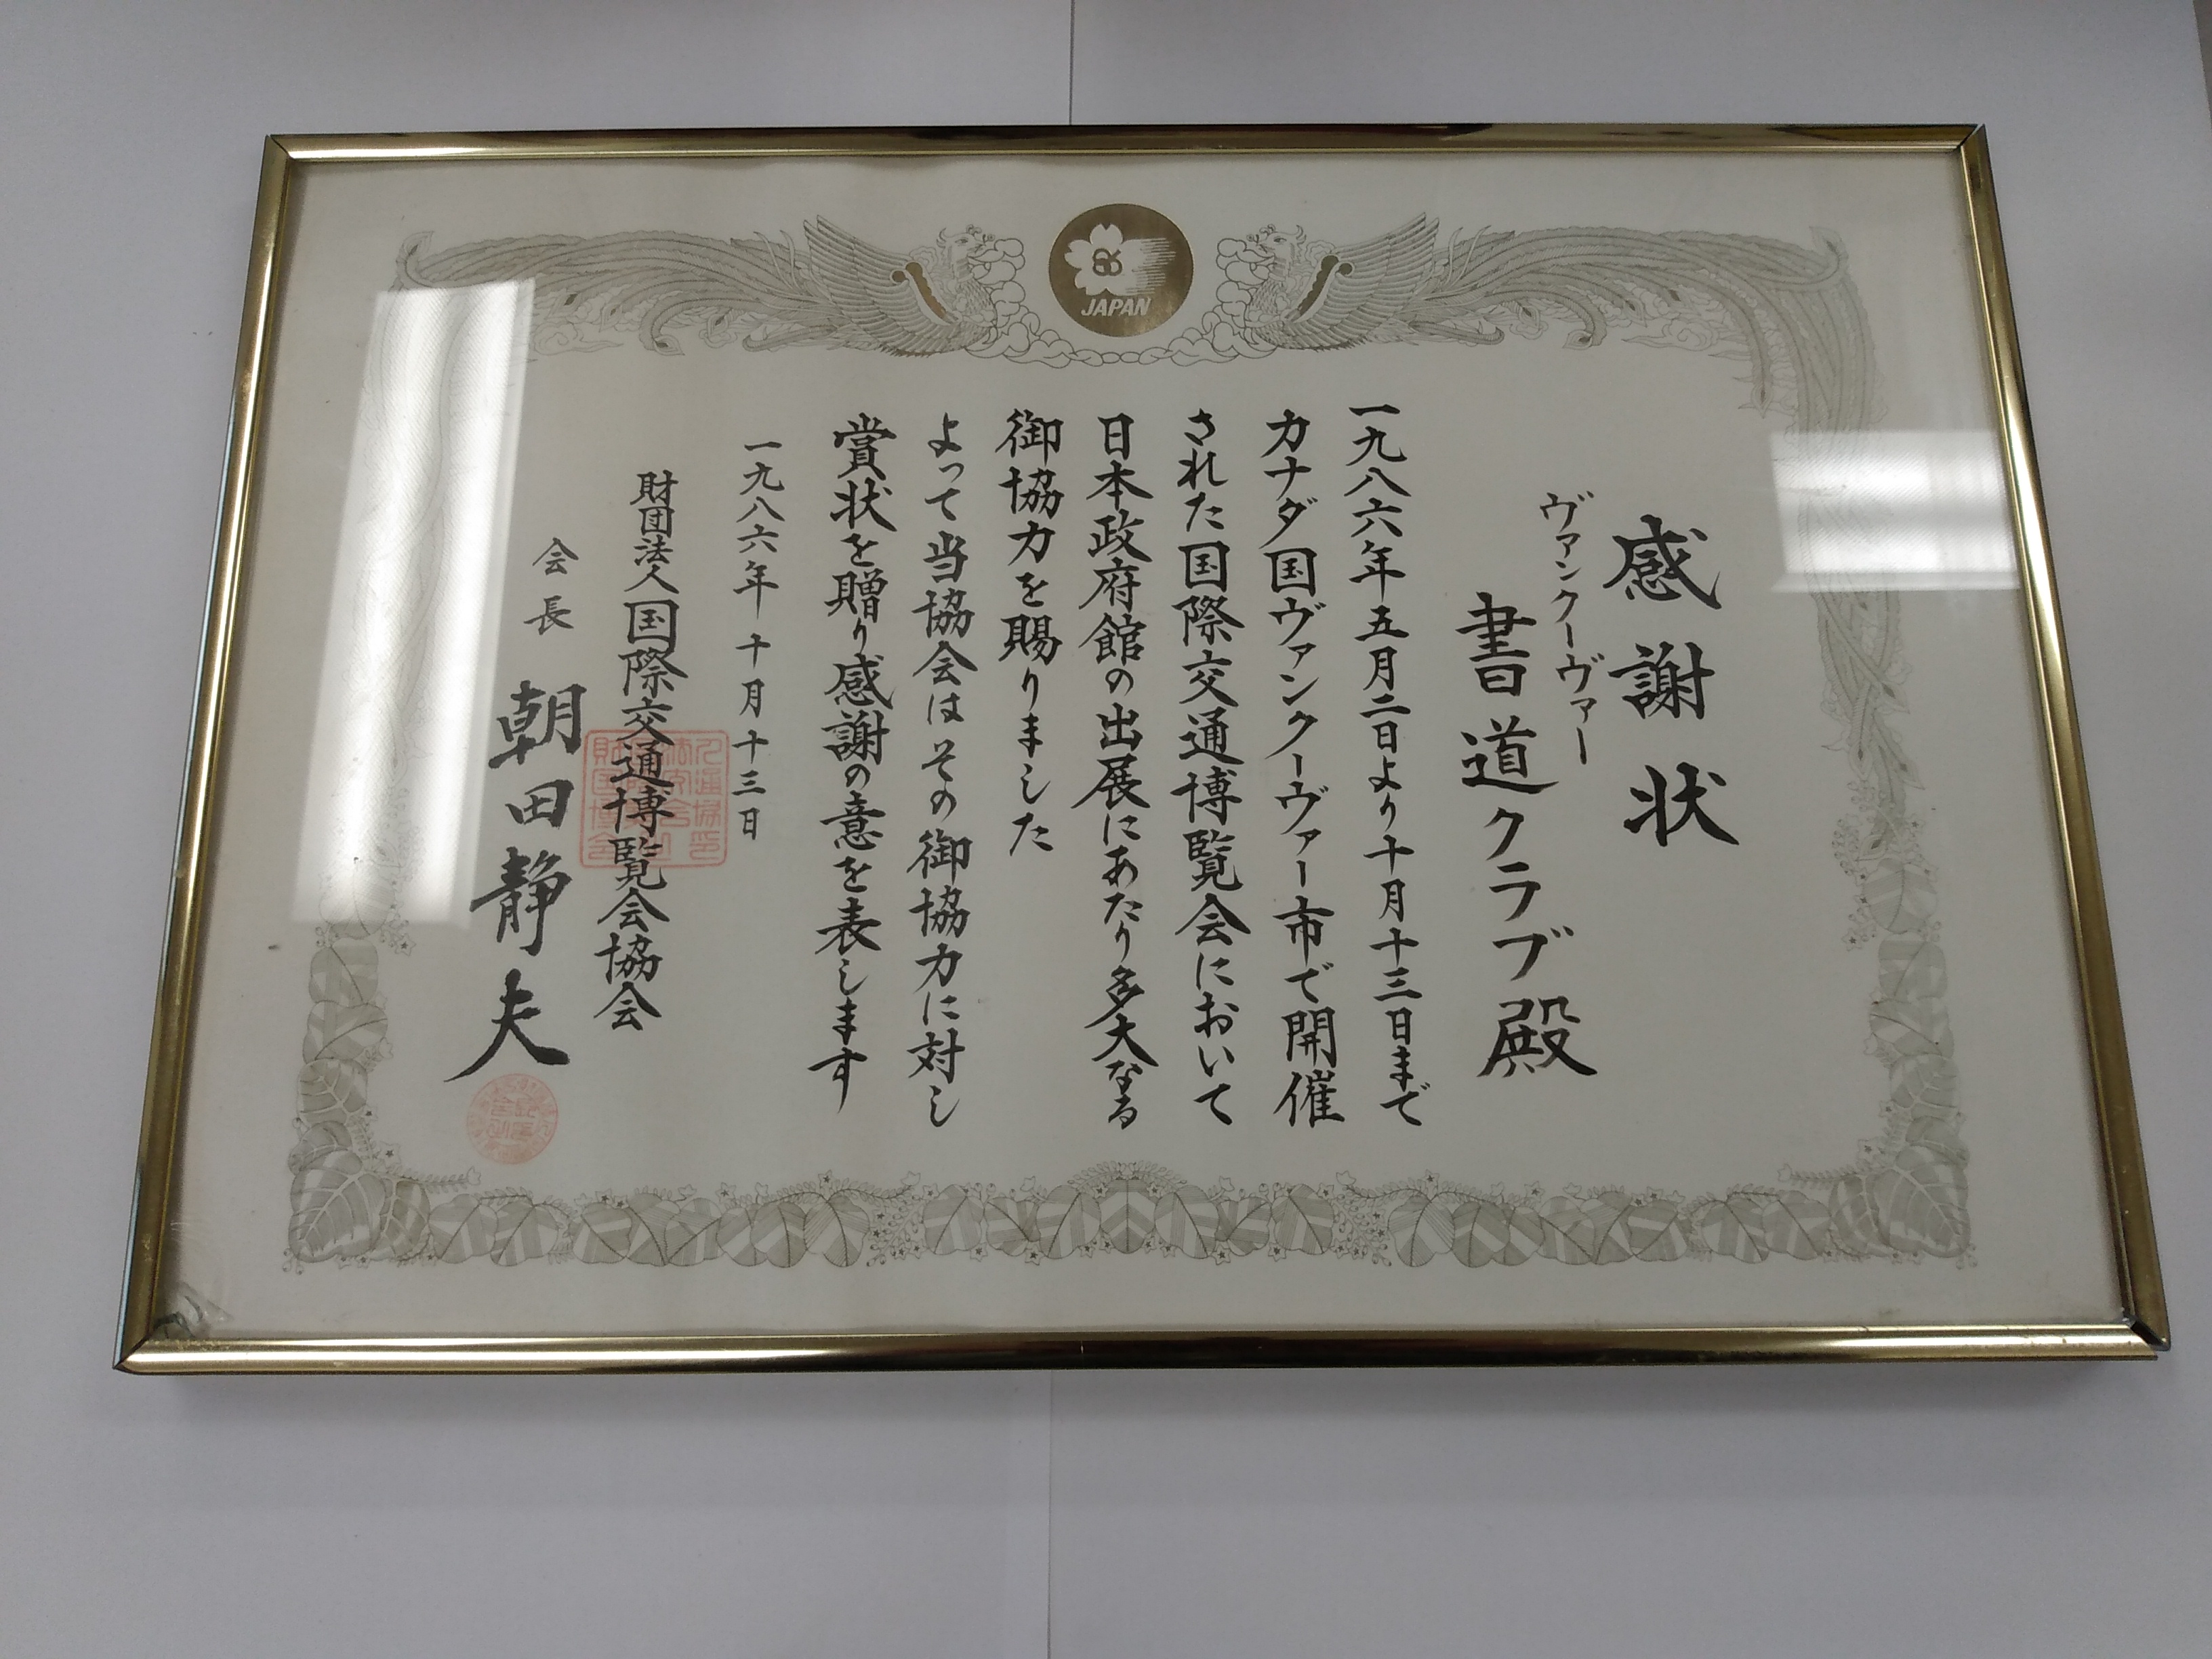 86
JAPAN
感謝状
ヴァンクーヴァー
書道クラブ殿
一九八六年五月二日より十月十三日まで
カナダ国ヴァンクーヴァー市で開催
された国際交通博覧会において
日本政府館の出展にあたり多大なる
御協力を賜りました
よって当協会はその御協力に対し
賞状を贈り感謝の意を表します
一九八六年十月十三日
財団法人国際交通博覧会協会
会長 朝田静夫